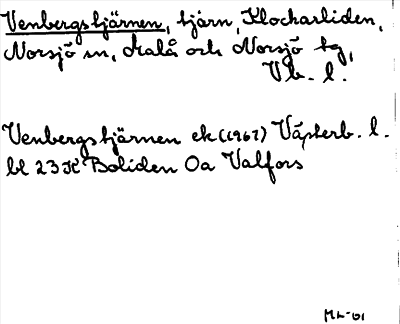 Venbergstjärnen, tjärn, Klockarliden,
Norsjö sn, Malå och Norsjö tg,
Vb. l.
Venbergstjärnen ek (1967) Västerb. l.
bl 23K Boliden 0a Valfors
ML-01